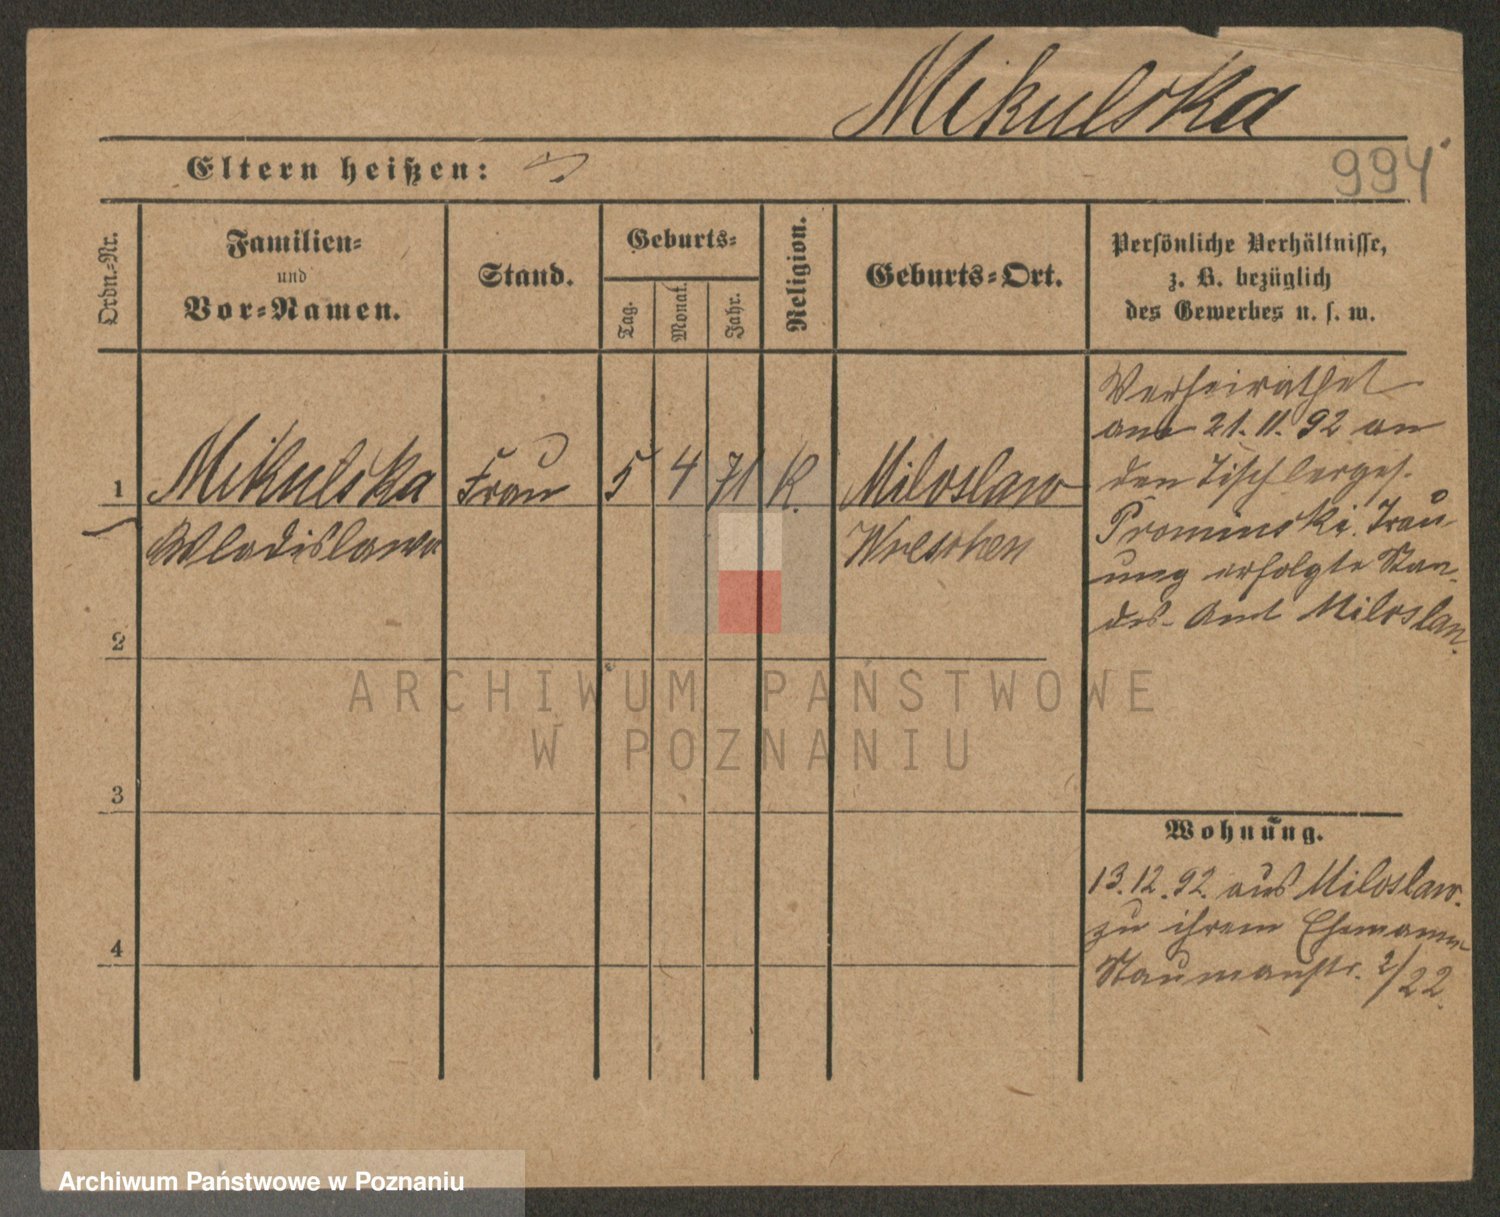 Mikulska
994
Eltern heißen:
Ordn.-Nr.
Familien-
und
Vor-Namen.
Stand.
Geburts-
Tag.
Monat.
Jahr.
Religion.
Geburts-Ort.
Persönliche Verhältnisse,
z. B. bezüglich
des Gewerbes u. s. w.
1
Mikulska Frau 5 4 71 K. Miloslaw
Wladislawa Wreschen
Verheirathet
am 21.11.92 an
den Tischlerges.
Prominski. Trau
ung erfolgte Stan-
des-Amt Miloslaw.
2
3
4
Wohnung.
13.12.92 aus Miloslaw.
zu ihrem Ehemann
Naumannstr. 2/22.
ARCHIWUM PAŃSTWOWE
W POZNANIU
Archiwum Państwowe w Poznaniu